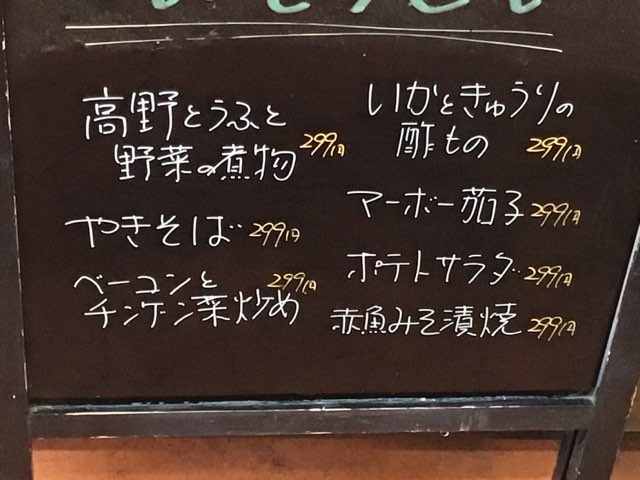 高野とうふと
野菜の煮物 299円
やきそば 299円
ベーコンと 299円
チンゲン菜炒め
いかときゅうりの
酢もの 299円
マーボー茄子 299円
ポテトサラダ 299円
赤魚みそ漬焼 299円